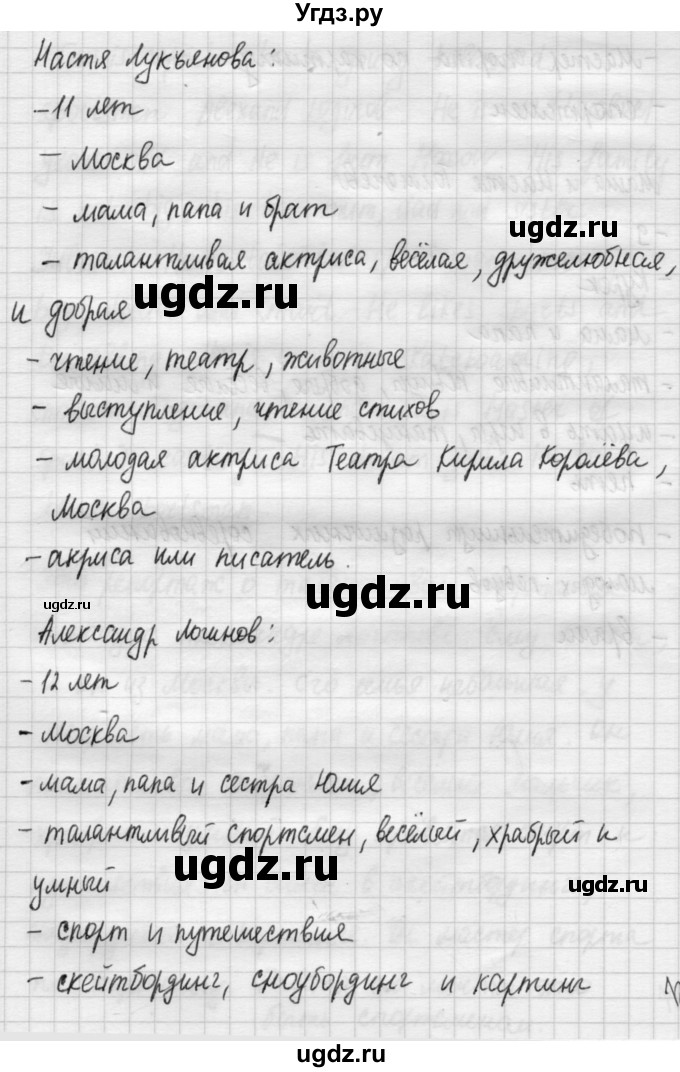 Угдз.ру
Настя Лукьянова:
- 11 лет
- Москва
- мама, папа и брат
ugdz.ru
- талантливая актриса, весёлая, дружелюбная,
ugdz.ru
и добрая
- чтение, театр, животные
- выступление, чтение стихов
- молодая актриса Театра Кирила Королёва,
Москва
- акриса или писатель.
ugdz.ru
ugdz.ru
Александр Логинов:
- 12 лет
- Москва
- мама, папа и сестра Юлия
- талантливый спортсмен, весёлый, храбрый и
ugdz.ru
ugdz.ru
умный
- спорт и путешествия
- скейтбординг, сноубординг и картинг
ugdz.ru